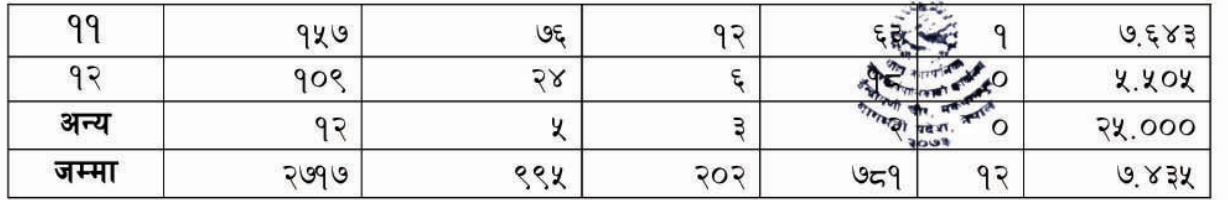 ११ १५७ ७६ १२ ६३ १ ७.६४३
१२ १०९ २४ ६ १८ ० ५.५०५
अन्य १२ ५ ३ २ ० २५.०००
जम्मा २७१७ ९९५ २०२ ७८१ १२ ७.४३५